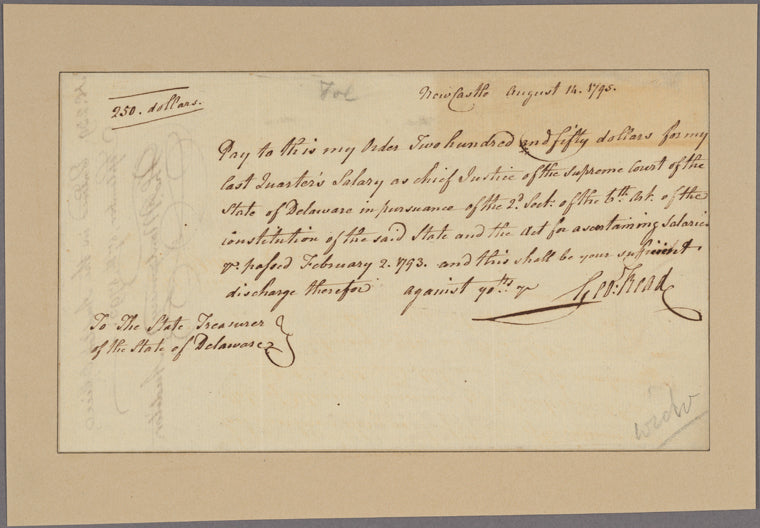 250. dollars.
Vol
NewCastle August 14. 1795.
Pay to this my Order Two hundred and fifty dollars for my
last Quarter's Salary as chief Justice of the supreme Court of the
State of Delaware in pursuance of the 2d. Sect: of the 6th. Art. of the
constitution of the said State and the Act for ascertaining salaries
&c. passed February 2. 1793. and this shall be your sufficient
discharge therefor against yo
Geo: Read
To The State Treasurer
of the State of Delaware